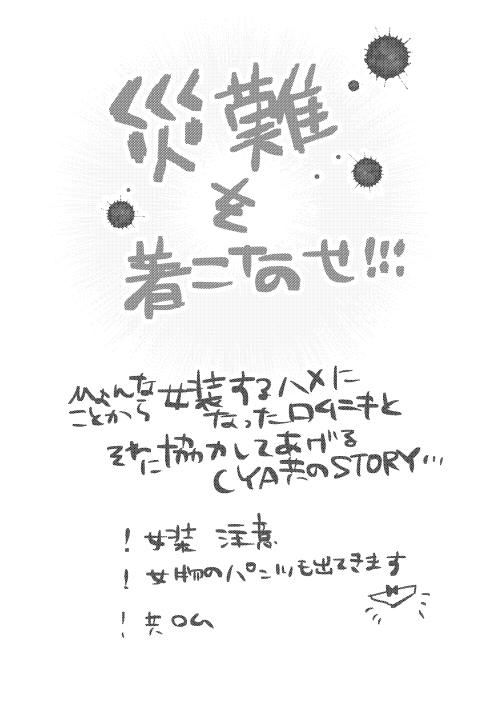 災難
を
着こなせ!!!
ひょんな
ことから
女装するハメに
なったロムニキと
それに協力してあげる
CYA共のSTORY…
! 女装 注意
! 女物のパンツも出てきます
! 共ロム